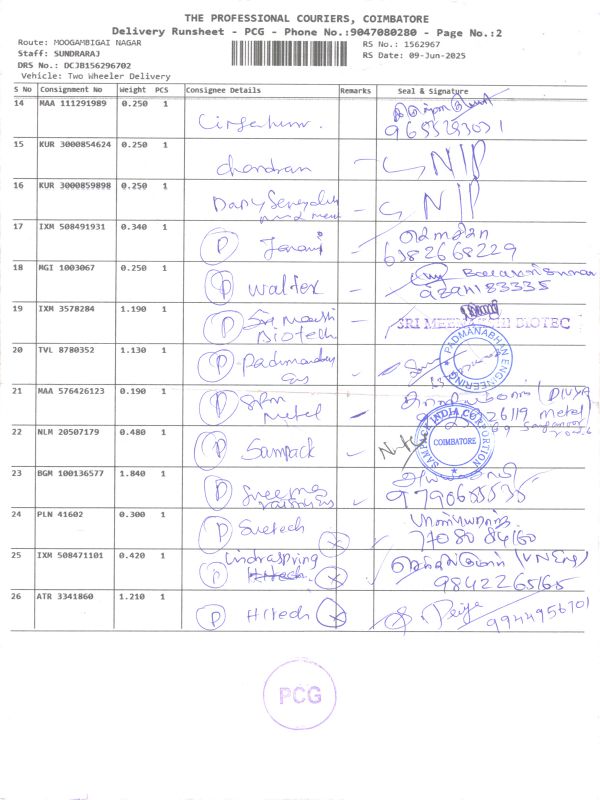 THE PROFESSIONAL COURIERS, COIMBATORE
Delivery Runsheet - PCG - Phone No.:9047080280 - Page No.:2
Route: MOOGAMBIGAI NAGAR
RS No.: 1562967
Staff: SUNDRARAJ
RS Date: 09-Jun-2025
DRS No.: DCJB156296702
Vehicle: Two Wheeler Delivery
S No Consignment No Weight PCS Consignee Details Remarks Seal & Signature
14 MAA 111291989 0.250 1
9655283031
15 KUR 3000854624 0.250 1 Chandran NIP
16 KUR 3000859898 0.250 1 NIP
17 IXM 508491931 0.340 1 P Janani
6382668229
18 MGI 1003067 0.250 1 P Walter
19 IXM 3578284 1.190 1 P Biotech
SRI MEENAKSHI BIOTEC
20 TVL 8780352 1.130 1 P
PADMANABHAN ENGINEERING
21 MAA 576426123 0.190 1 P SPM Metal (DIVYA metal)
22 NLM 20507179 0.480 1 P Sampack
SAMPACK INDIA CORPORATION COIMBATORE
23 BGM 100136577 1.840 1 P
9790655535
24 PLN 41602 0.300 1 P Suetech
7708084160
25 IXM 508471101 0.420 1 P Lindraspring (VN Eng)
9842265165
26 ATR 3341860 1.210 1 P Hitech
9944956701
PCG